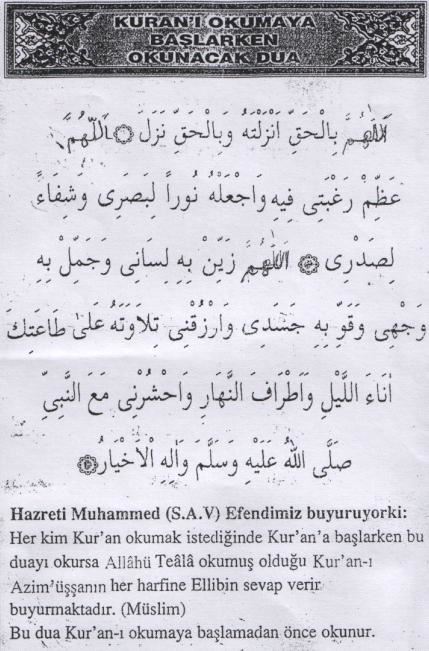 KURAN'I OKUMAYA
BAŞLARKEN
OKUNACAK DUA
اَللّٰهُمَّ بِالْحَقِّ اَنْزَلْتَهُ وَبِالْحَقِّ نَزَلَ ۞ اَللّٰهُمَّ
عَظِّمْ رَغْبَتِى فِيهِ وَاجْعَلْهُ نُوراً لِبَصَرِى وَشِفَاءً
لِصَدْرِى ۞ اَللّٰهُمَّ زَيِّنْ بِهِ لِسَانِى وَجَمِّلْ بِهِ
وَجْهِى وَقَوِّ بِهِ جَسَدِى وَارْزُقْنِى تِلَاوَتَهُ عَلَى طَاعَتِكَ
اٰنَاءَ اللَّيْلِ وَاَطْرَافَ النَّهَارِ وَاحْشُرْنِى مَعَ النَّبِىِّ
صَلَّى اللّٰهُ عَلَيْهِ وَسَلَّمَ وَاٰلِهِ الْاَخْيَارُ ۞
Hazreti Muhammed (S.A.V) Efendimiz buyuruyorki:
Her kim Kur'an okumak istediğinde Kur'an'a başlarken bu
duayı okursa Allâhü Teâlâ okumuş olduğu Kur'an-ı
Azim'üşşanın her harfine Ellibin sevap verir
buyurmaktadır. (Müslim)
Bu dua Kur'an-ı okumaya başlamadan önce okunur.